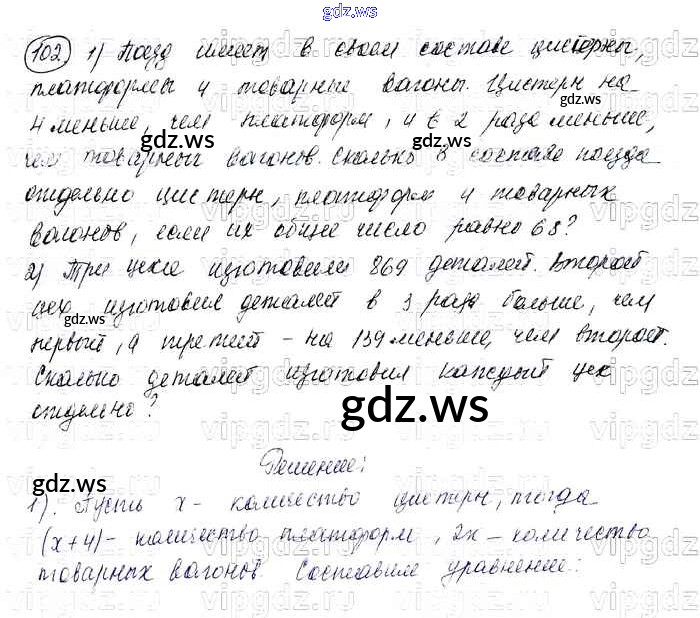 vipgdz.ws
gdz.ws
102 1) Поезд имеет в своем составе цистерны,
платформы и товарные вагоны. Цистерн на
gdz.ws gdz.ws
4 меньше, чем платформ, и в 2 раза меньше,
чем товарных вагонов. Сколько в составе поезда
отдельно цистерн, платформ и товарных
вагонов, если их общее число равно 68?
2) Три цеха изготовили 869 деталей. Второй
цех изготовил деталей в 3 раза больше, чем
gdz.ws gdz.ws
первый, а третий – на 139 меньше, чем второй.
Сколько деталей изготовил каждый цех
отдельно?
gdz.ws
Решение:
gdz.ws
1). Пусть x – количество цистерн, тогда
(x+4) – количество платформ, 2x – количество
товарных вагонов. Составим уравнение: